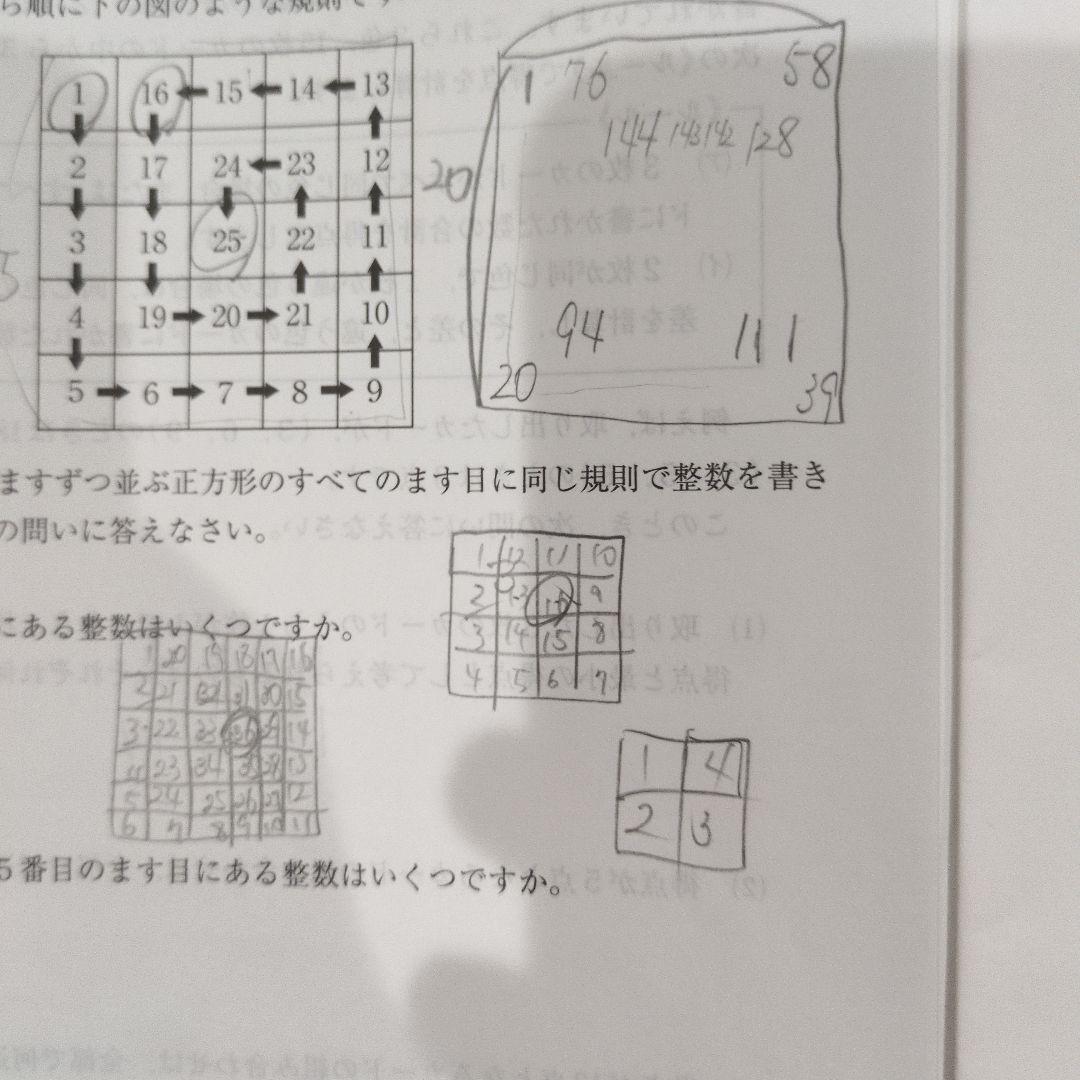 ら順に下の図のような規則です
1 16 ← 15 ← 14 ← 13
2 17 24 ← 23 12
3 18 25 22 11
4 19 → 20 → 21 10
5 → 6 → 7 → 8 → 9
5
20
1 76 58
144 143 142 128
94 111
20 39
ますずつ並ぶ正方形のすべてのます目に同じ規則で整数を書き
の問いに答えなさい。
1 12 11 10
2 13 16 9
3 14 15 8
4 5 6 7
にある整数はいくつですか。
1 20 19 18 17 16
2 21 32 31 30 15
3 22 33 36 29 14
4 23 34 35 28 13
5 24 25 26 27 12
6 7 8 9 10 11
1 4
2 3
5番目のます目にある整数はいくつですか。